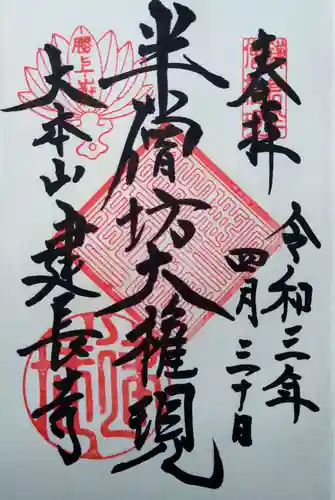 奉拝
令和三年
四月三十日
半僧坊大権現
大本山建長寺